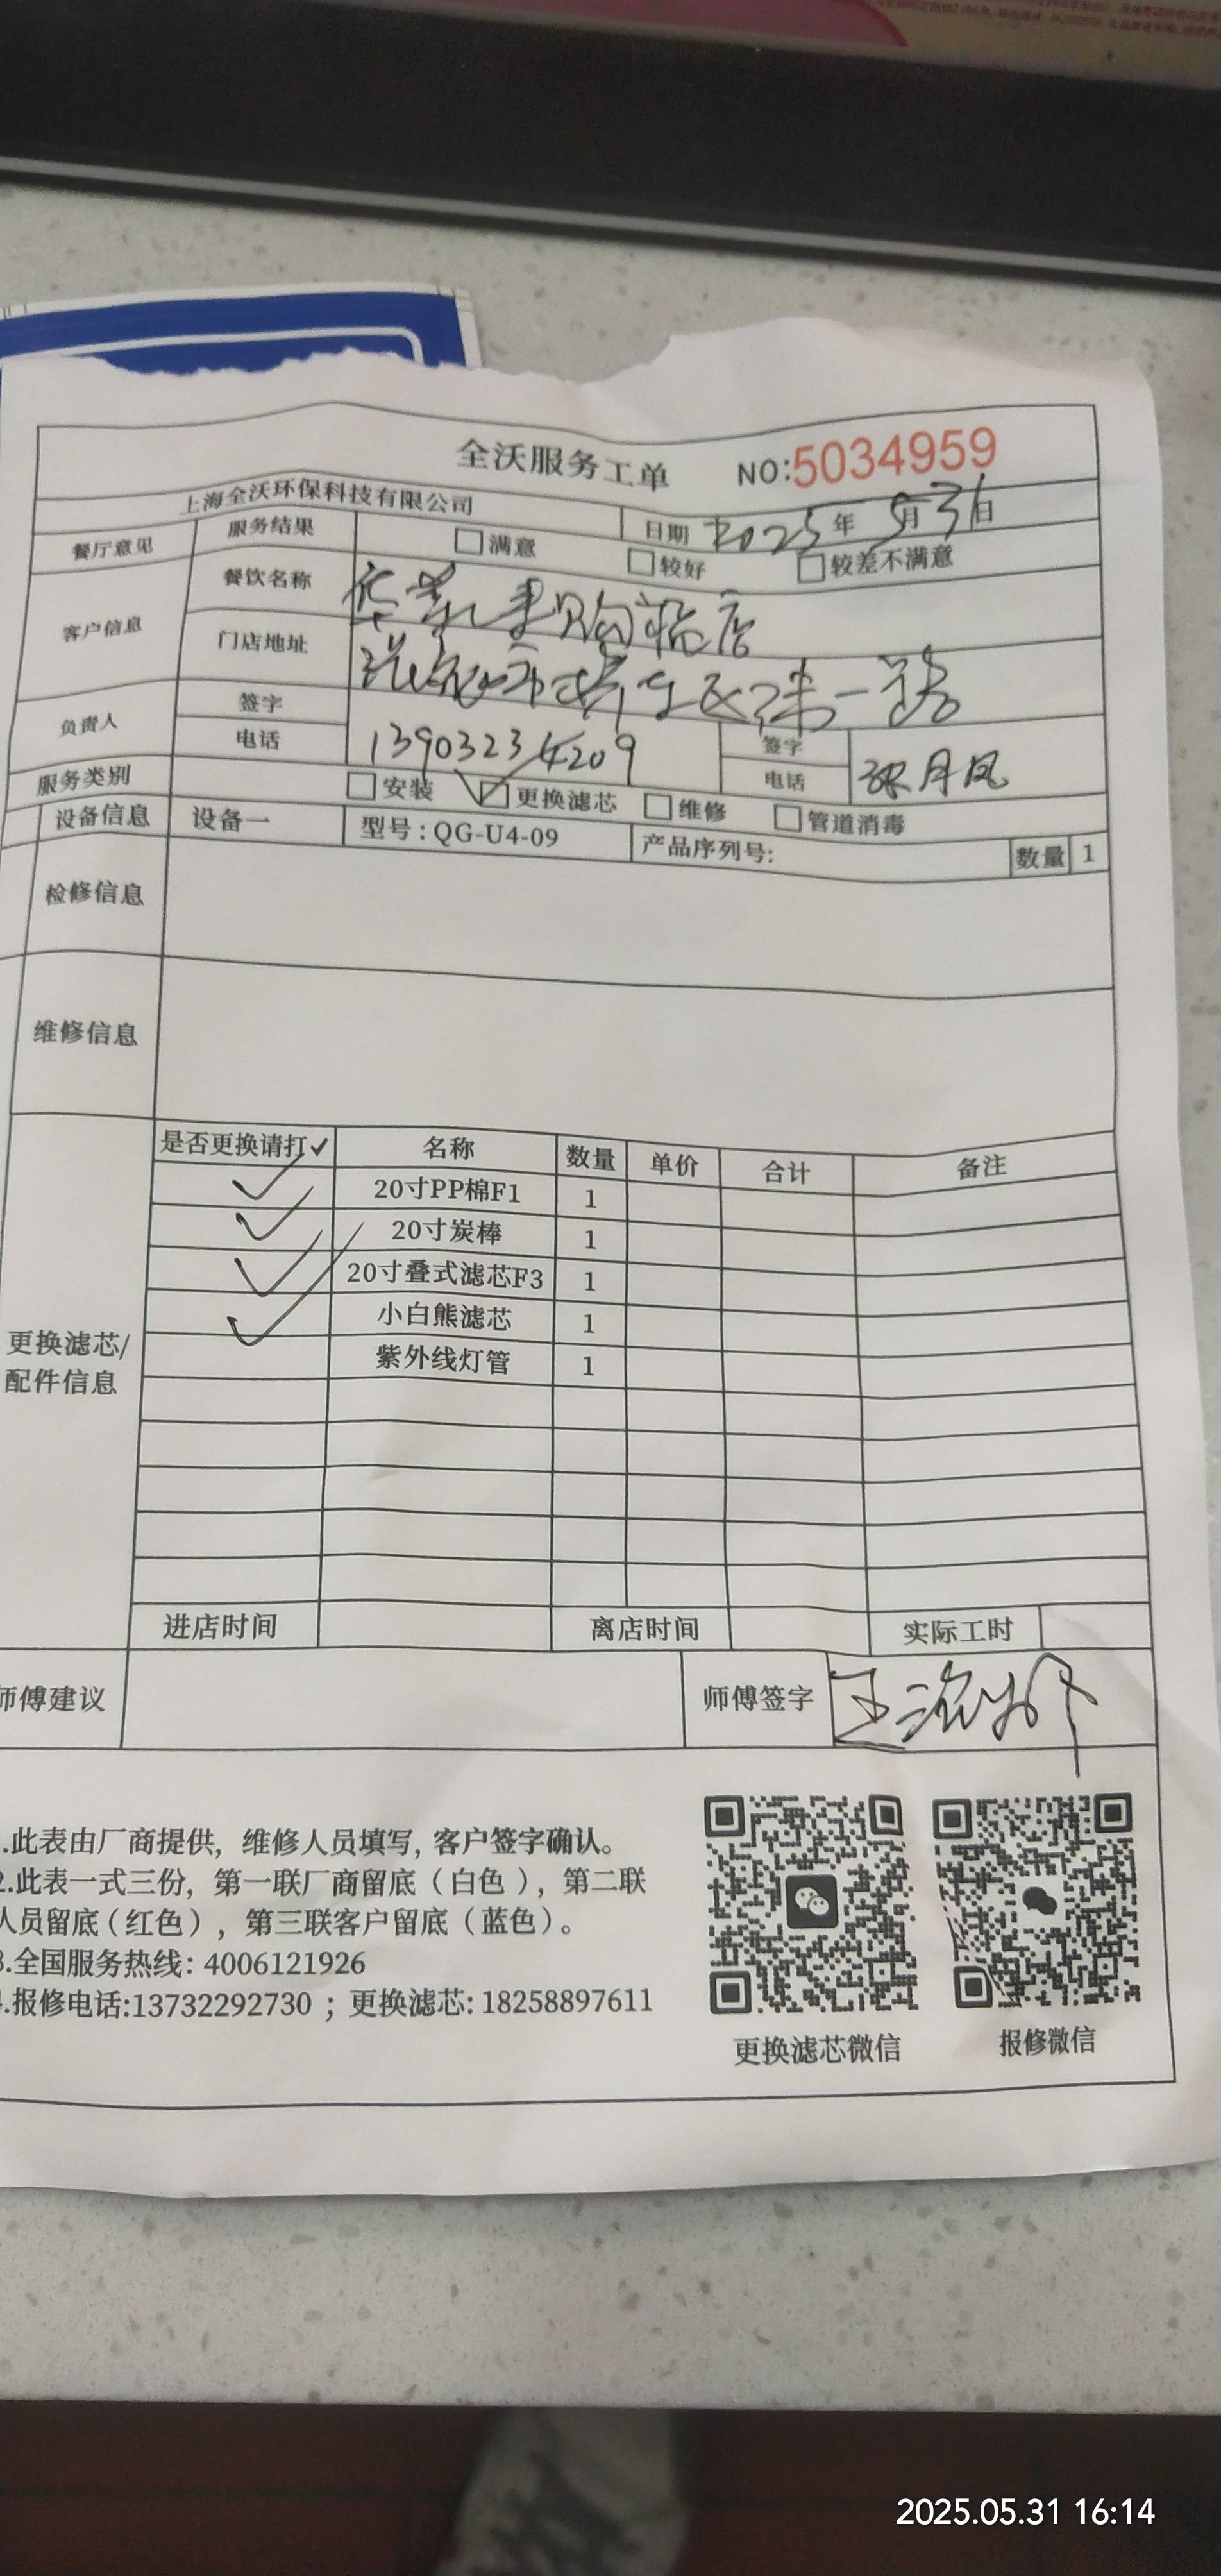 全沃服务工单 NO:5034959
上海全沃环保科技有限公司 日期 2025年 5月31日
餐厅意见 服务结果 满意 较好 较差不满意
客户信息 餐饮名称 购 店
门店地址 一路
负责人 签字 签字
电话 13903234209 电话 月凤
服务类别 安装 更换滤芯 维修 管道消毒
设备信息 设备一 型号:QG-U4-09 产品序列号: 数量 1
检修信息
维修信息
是否更换请打✓ 名称 数量 单价 合计 备注
✓ 20寸PP棉F1 1
✓ 20寸炭棒 1
✓ 20寸叠式滤芯F3 1
✓ 小白熊滤芯 1
紫外线灯管 1
更换滤芯/
配件信息
进店时间 离店时间 实际工时
师傅建议 师傅签字 王
.此表由厂商提供，维修人员填写，客户签字确认。
2.此表一式三份，第一联厂商留底（白色），第二联
人员留底（红色），第三联客户留底（蓝色）。
3.全国服务热线：4006121926
.报修电话:13732292730；更换滤芯：18258897611
更换滤芯微信 报修微信
2025.05.31 16:14